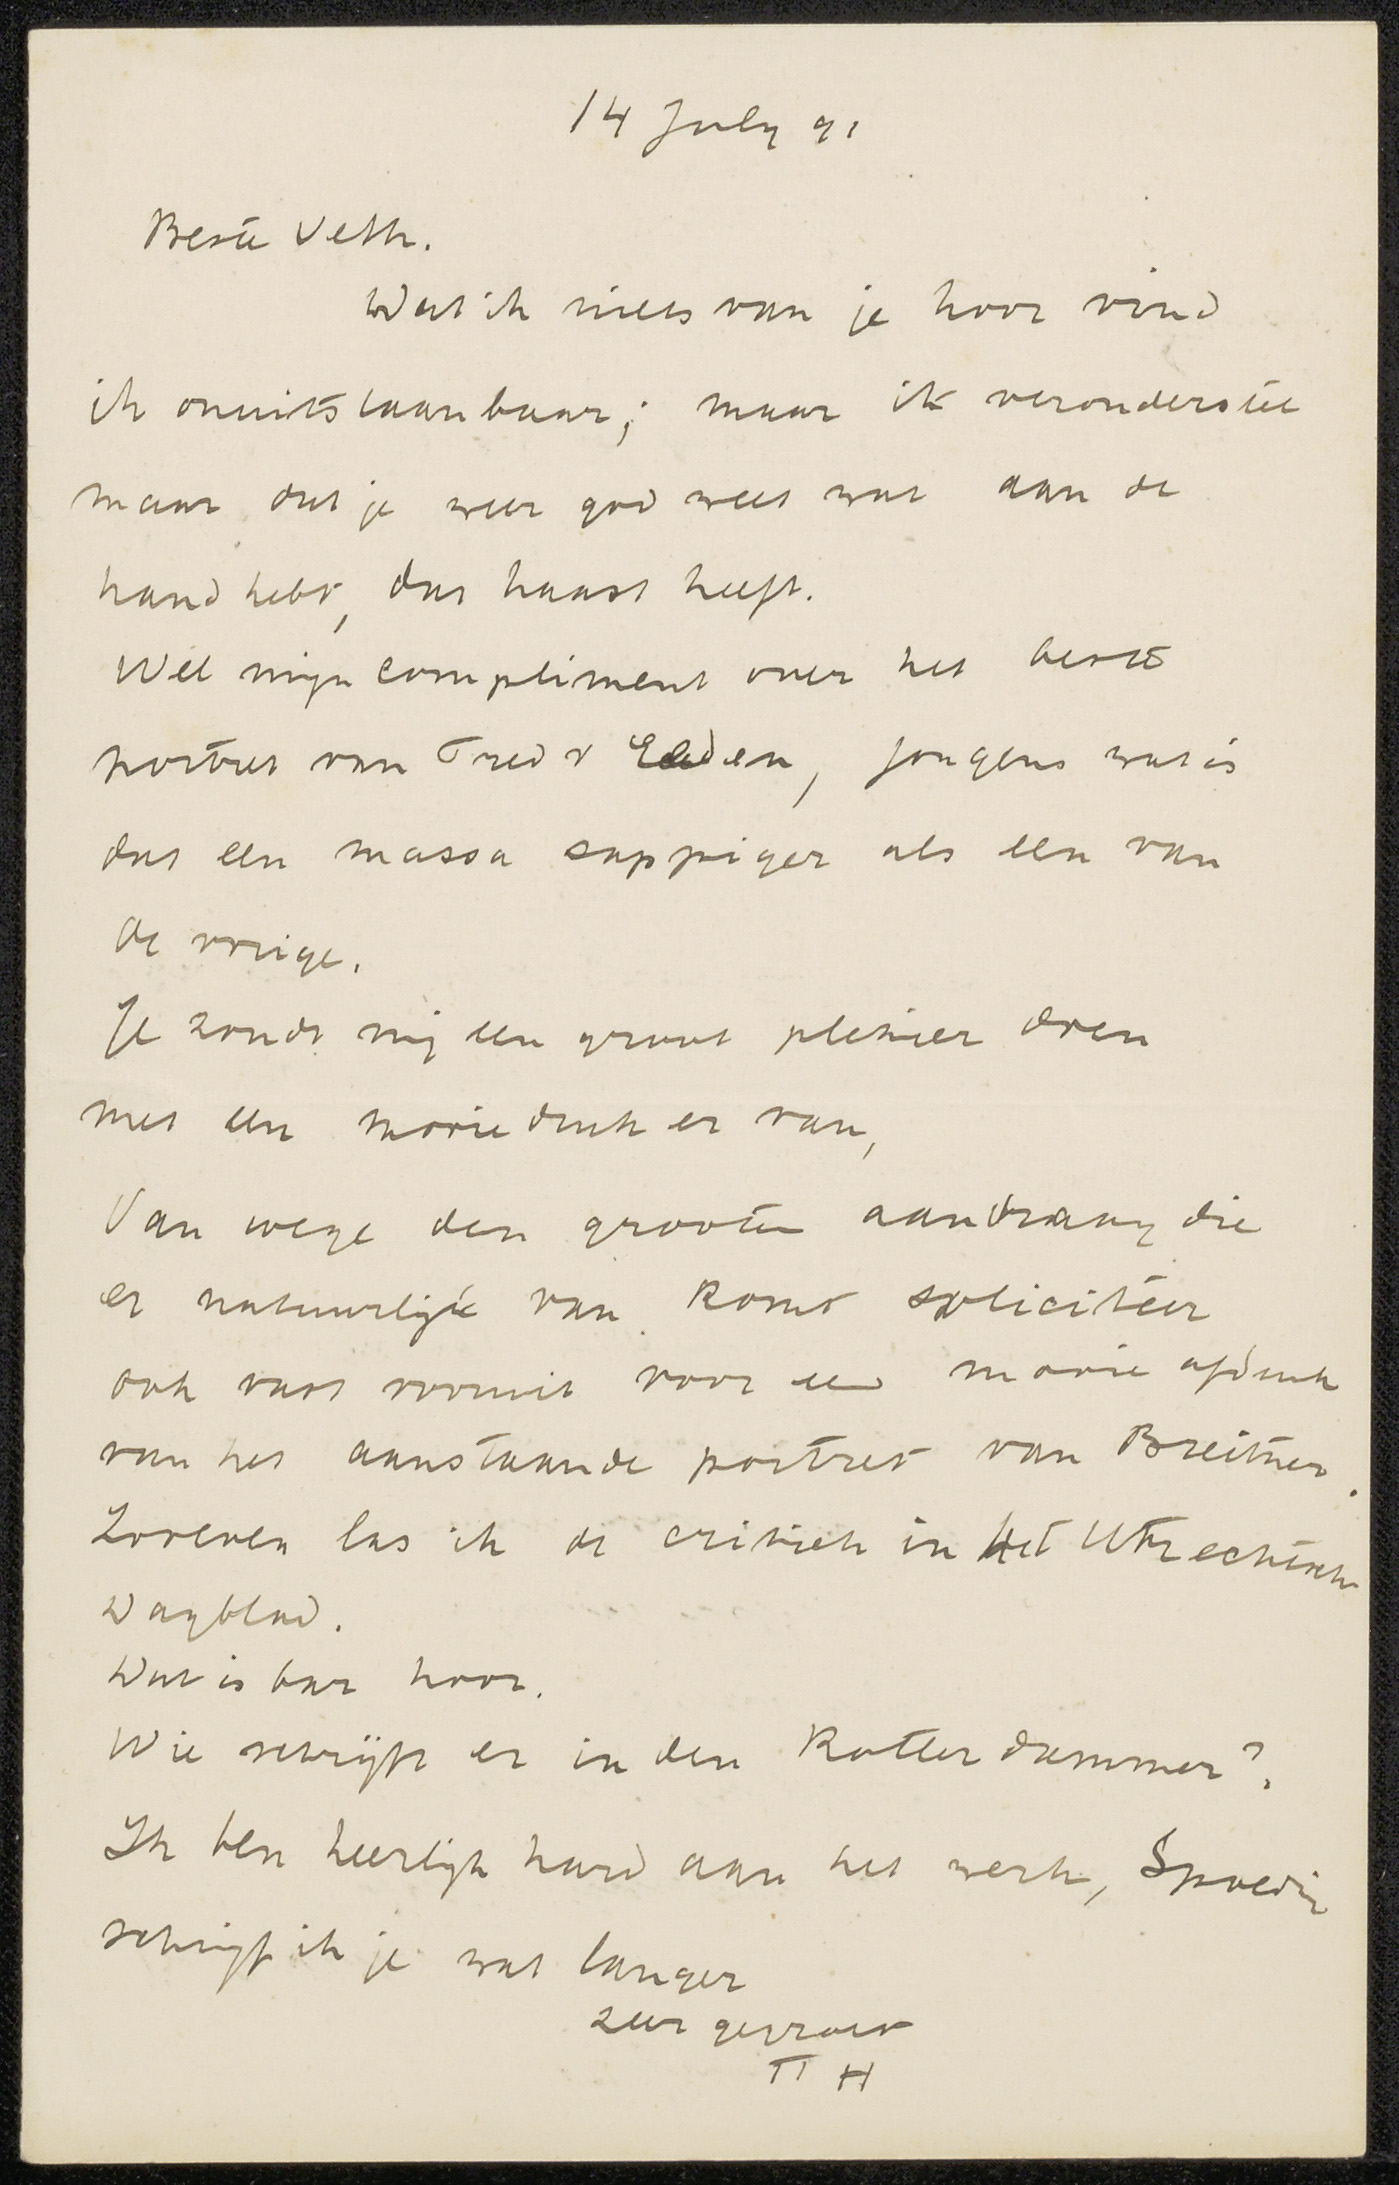 14 July 91
Beste Veth.
Dat ik niets van je hoor vind
ik onuitstaanbaar; maar ik veronderstel
maar dat je weer god weet wat aan de
hand hebt, dat haast heeft.
Wel mijn compliment over het beste
portret van Fred v Eeden, jongens wat is
dat een massa sappiger als een van
de vorige.
Je zondt mij een groot plesier doen
met een mooie druk er van,
Van wege den grooten aandrang die
er natuurlijk van komt soliciteer
ook vast vooruit voor een mooie afdruk
van het aanstaande portret van Breitner.
Zoveven las ik de critiek in het Utrechtsch
Dagblad.
Dat is bar hoor.
Wie schrijft er in den Rotterdammer?
Ik ben heerlijk hard aan het werk, Spoedig
schrijf ik je wat langer
zeer gegroet
TT H